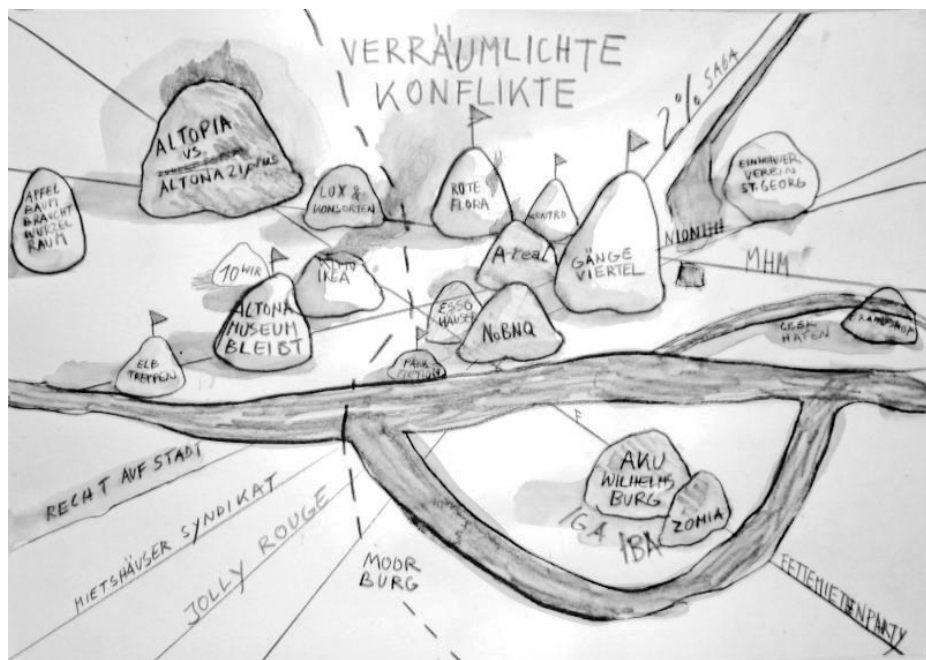 VERRÄUMLICHTE
KONFLIKTE
2% SAGA
ALTOPIA
VS.
ALTONAZIRPUS
APFEL
BAUM
BRAUCHT
WURZEL
RAUM
LUX &
KONSORTEN
ROTE
FLORA
EINWOHNER
VEREIN
ST. GEORG
GÄNGE
VIERTEL
A-real
MHM
10WIR
IKEA
ALTONA
MUSEUM
BLEIBT
ESSO
HÄUSER
NoBNQ
HAFEN
ELB
TREPPEN
PARK
FICTION
RECHT AUF STADT
MIETSHÄUSER SYNDIKAT
JOLLY ROUGE
MOOR
BURG
F
AKU
WILHELMS
BURG
ZOMIA
IGA
IBA
FETTEMIETENPARTY